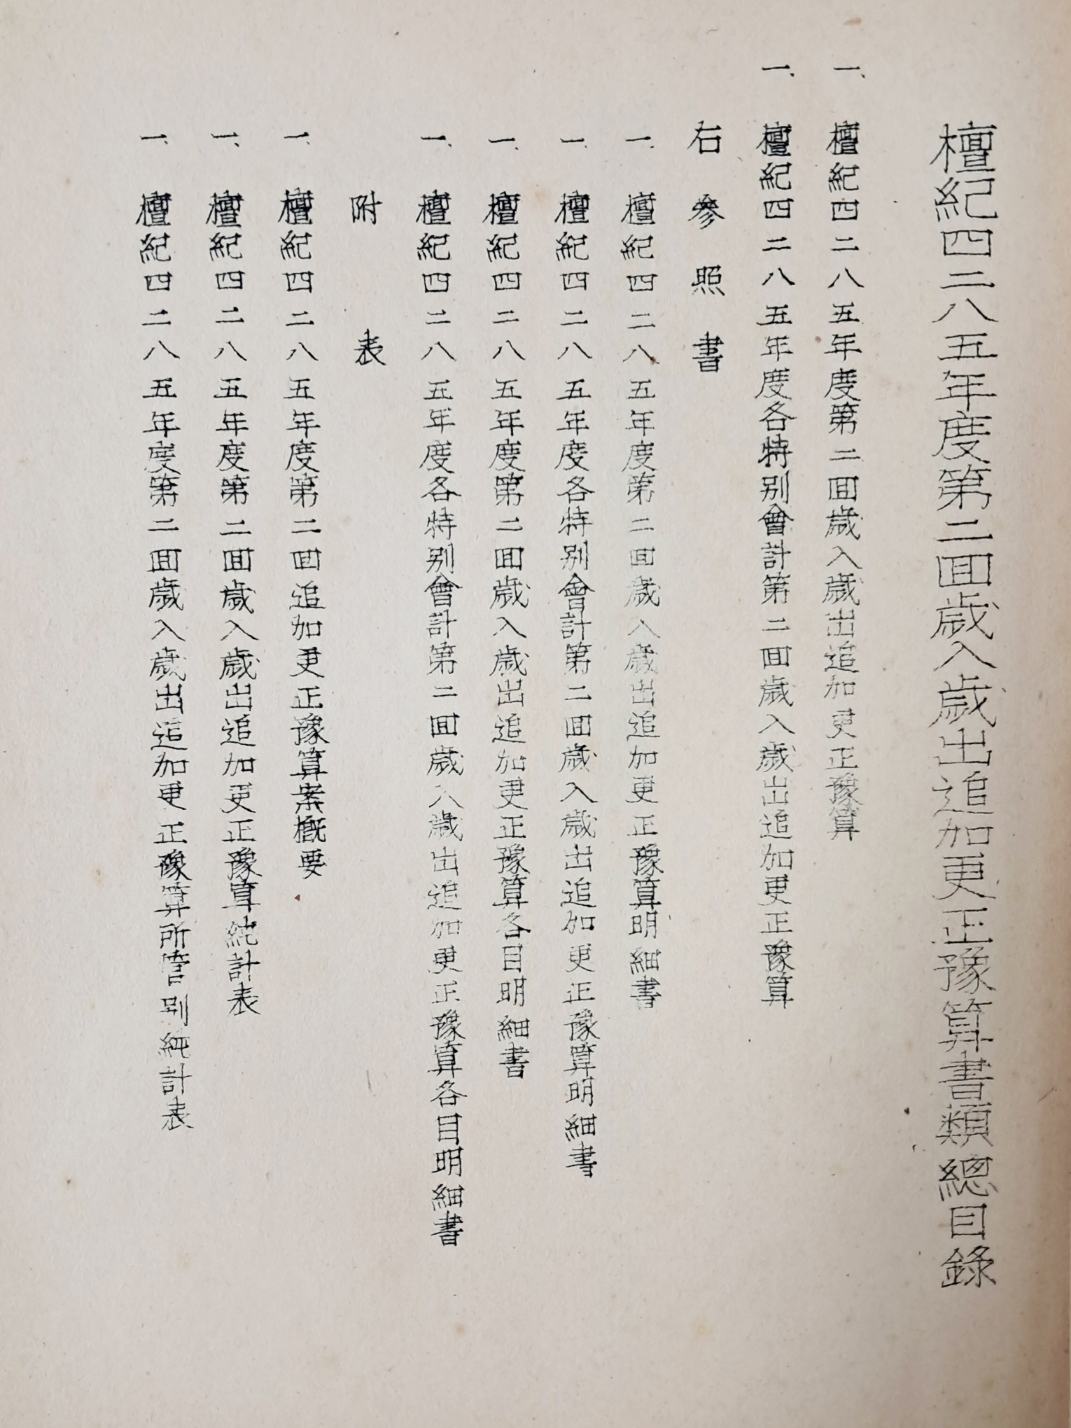 檀紀四二八五年度第二回歲入歲出追加更正豫算書類總目錄
一、檀紀四二八五年度第二回歲入歲出追加更正豫算
一、檀紀四二八五年度各特別會計第二回歲入歲出追加更正豫算
右參照書
一、檀紀四二八五年度第二回歲入歲出追加更正豫算明細書
一、檀紀四二八五年度各特別會計第二回歲入歲出追加更正豫算明細書
一、檀紀四二八五年度第二回歲入歲出追加更正豫算各目明細書
一、檀紀四二八五年度各特別會計第二回歲入歲出追加更正豫算各目明細書
附表
一、檀紀四二八五年度第二回追加更正豫算案槪要
一、檀紀四二八五年度第二回歲入歲出追加更正豫算純計表
一、檀紀四二八五年度第二回歲入歲出追加更正豫算所管別純計表